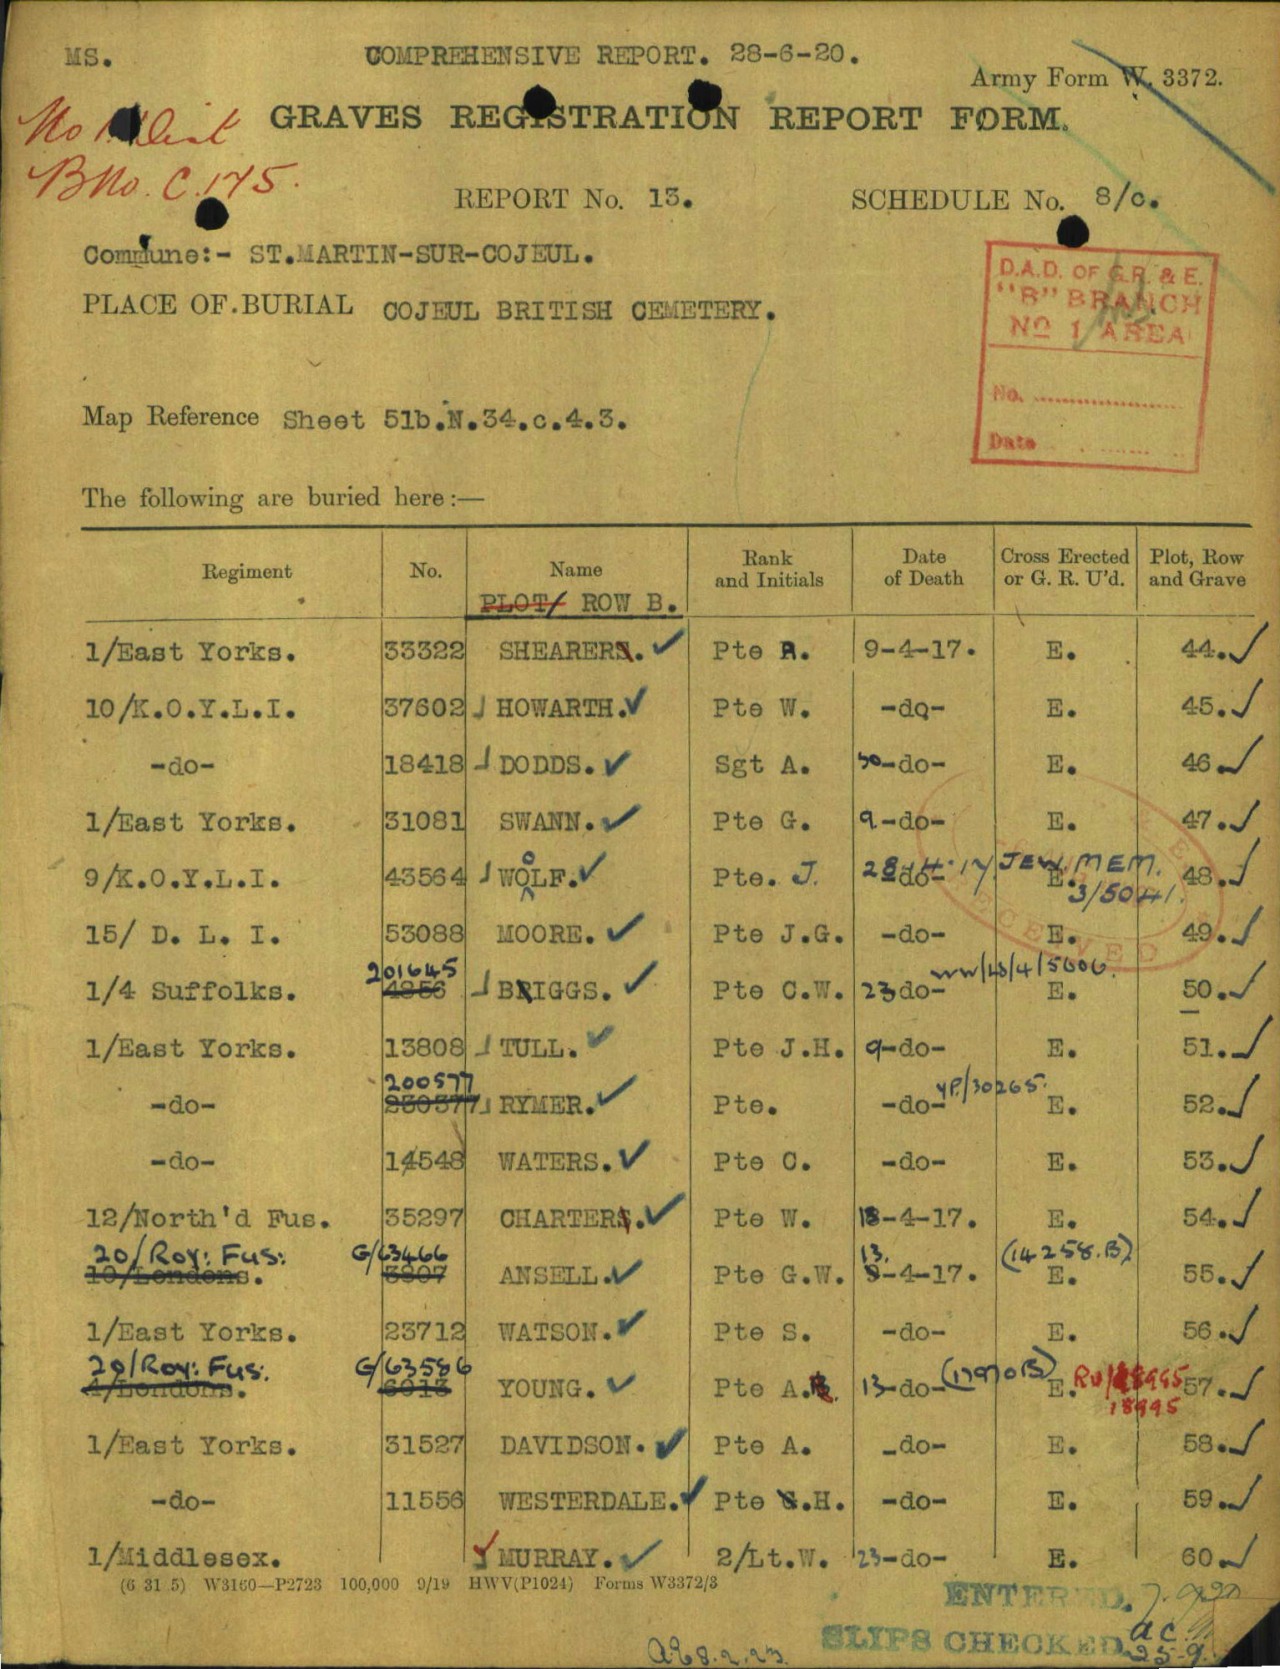 MS. COMPREHENSIVE REPORT. 28-6-20.
Army Form W. 3372.
GRAVES REGISTRATION REPORT FORM.
BNo. C.175.
REPORT No. 13. SCHEDULE No. 8/c.
Commune:- ST.MARTIN-SUR-COJEUL.
PLACE OF BURIAL COJEUL BRITISH CEMETERY.
D.A.D. OF G.R. & E.
"B" BRANCH
No 1 AREA
No. ....................
Date
Map Reference Sheet 51b.N.34.c.4.3.
The following are buried here:—
Regiment No. Name Rank and Initials Date of Death Cross Erected or G. R. U'd. Plot, Row and Grave
PLOT/ ROW B.
1/East Yorks. 33322 SHEARER. ✓ Pte R. 9-4-17. E. 44. ✓
10/K.O.Y.L.I. 37602 HOWARTH. ✓ Pte W. -do- E. 45. ✓
-do- 18418 DODDS. ✓ Sgt A. -do- E. 46. ✓
1/East Yorks. 31081 SWANN. ✓ Pte G. 9-do- E. 47. ✓
JEW. MEM.
9/K.O.Y.L.I. 43564 WOOLF. ✓ Pte. J. 28-4-17 -do- E. 48. ✓
3/5041.
15/ D. L. I. 53088 MOORE. ✓ Pte J.G. -do- E. 49. ✓
201645 WW/13/4/5606.
1/4 Suffolks. 4856 BRIGGS. ✓ Pte C.W. 23 do- E. 50. ✓
1/East Yorks. 13808 TULL. ✓ Pte J.H. 9-do- E. 51. ✓
200577 YP/30265.
-do- 230377 RYMER. ✓ Pte. -do- E. 52. ✓
-do- 14548 WATERS. ✓ Pte C. -do- E. 53. ✓
12/North'd Fus. 35297 CHARTERS. ✓ Pte W. 13-4-17. E. 54. ✓
20/Roy: Fus: G/63466 13. (14258.B)
10/Londons. 3807 ANSELL. ✓ Pte G.W. 8-4-17. E. 55. ✓
1/East Yorks. 23712 WATSON. ✓ Pte S. -do- E. 56. ✓
20/Roy: Fus: G/63586 (17970B)
4/Londons. 6013 YOUNG. ✓ Pte A. 13-do- E. 57. ✓
18995
1/East Yorks. 31527 DAVIDSON. ✓ Pte A. -do- E. 58. ✓
-do- 11556 WESTERDALE. ✓ Pte G.H. -do- E. 59. ✓
1/Middlesex. MURRAY. ✓ 2/Lt.W. 23-do- E. 60. ✓
(6 31 5) W3160—P2723 100,000 9/19 HWV(P1024) Forms W3372/3
ENTERED.
SLIPS CHECKED.
8.2.23.